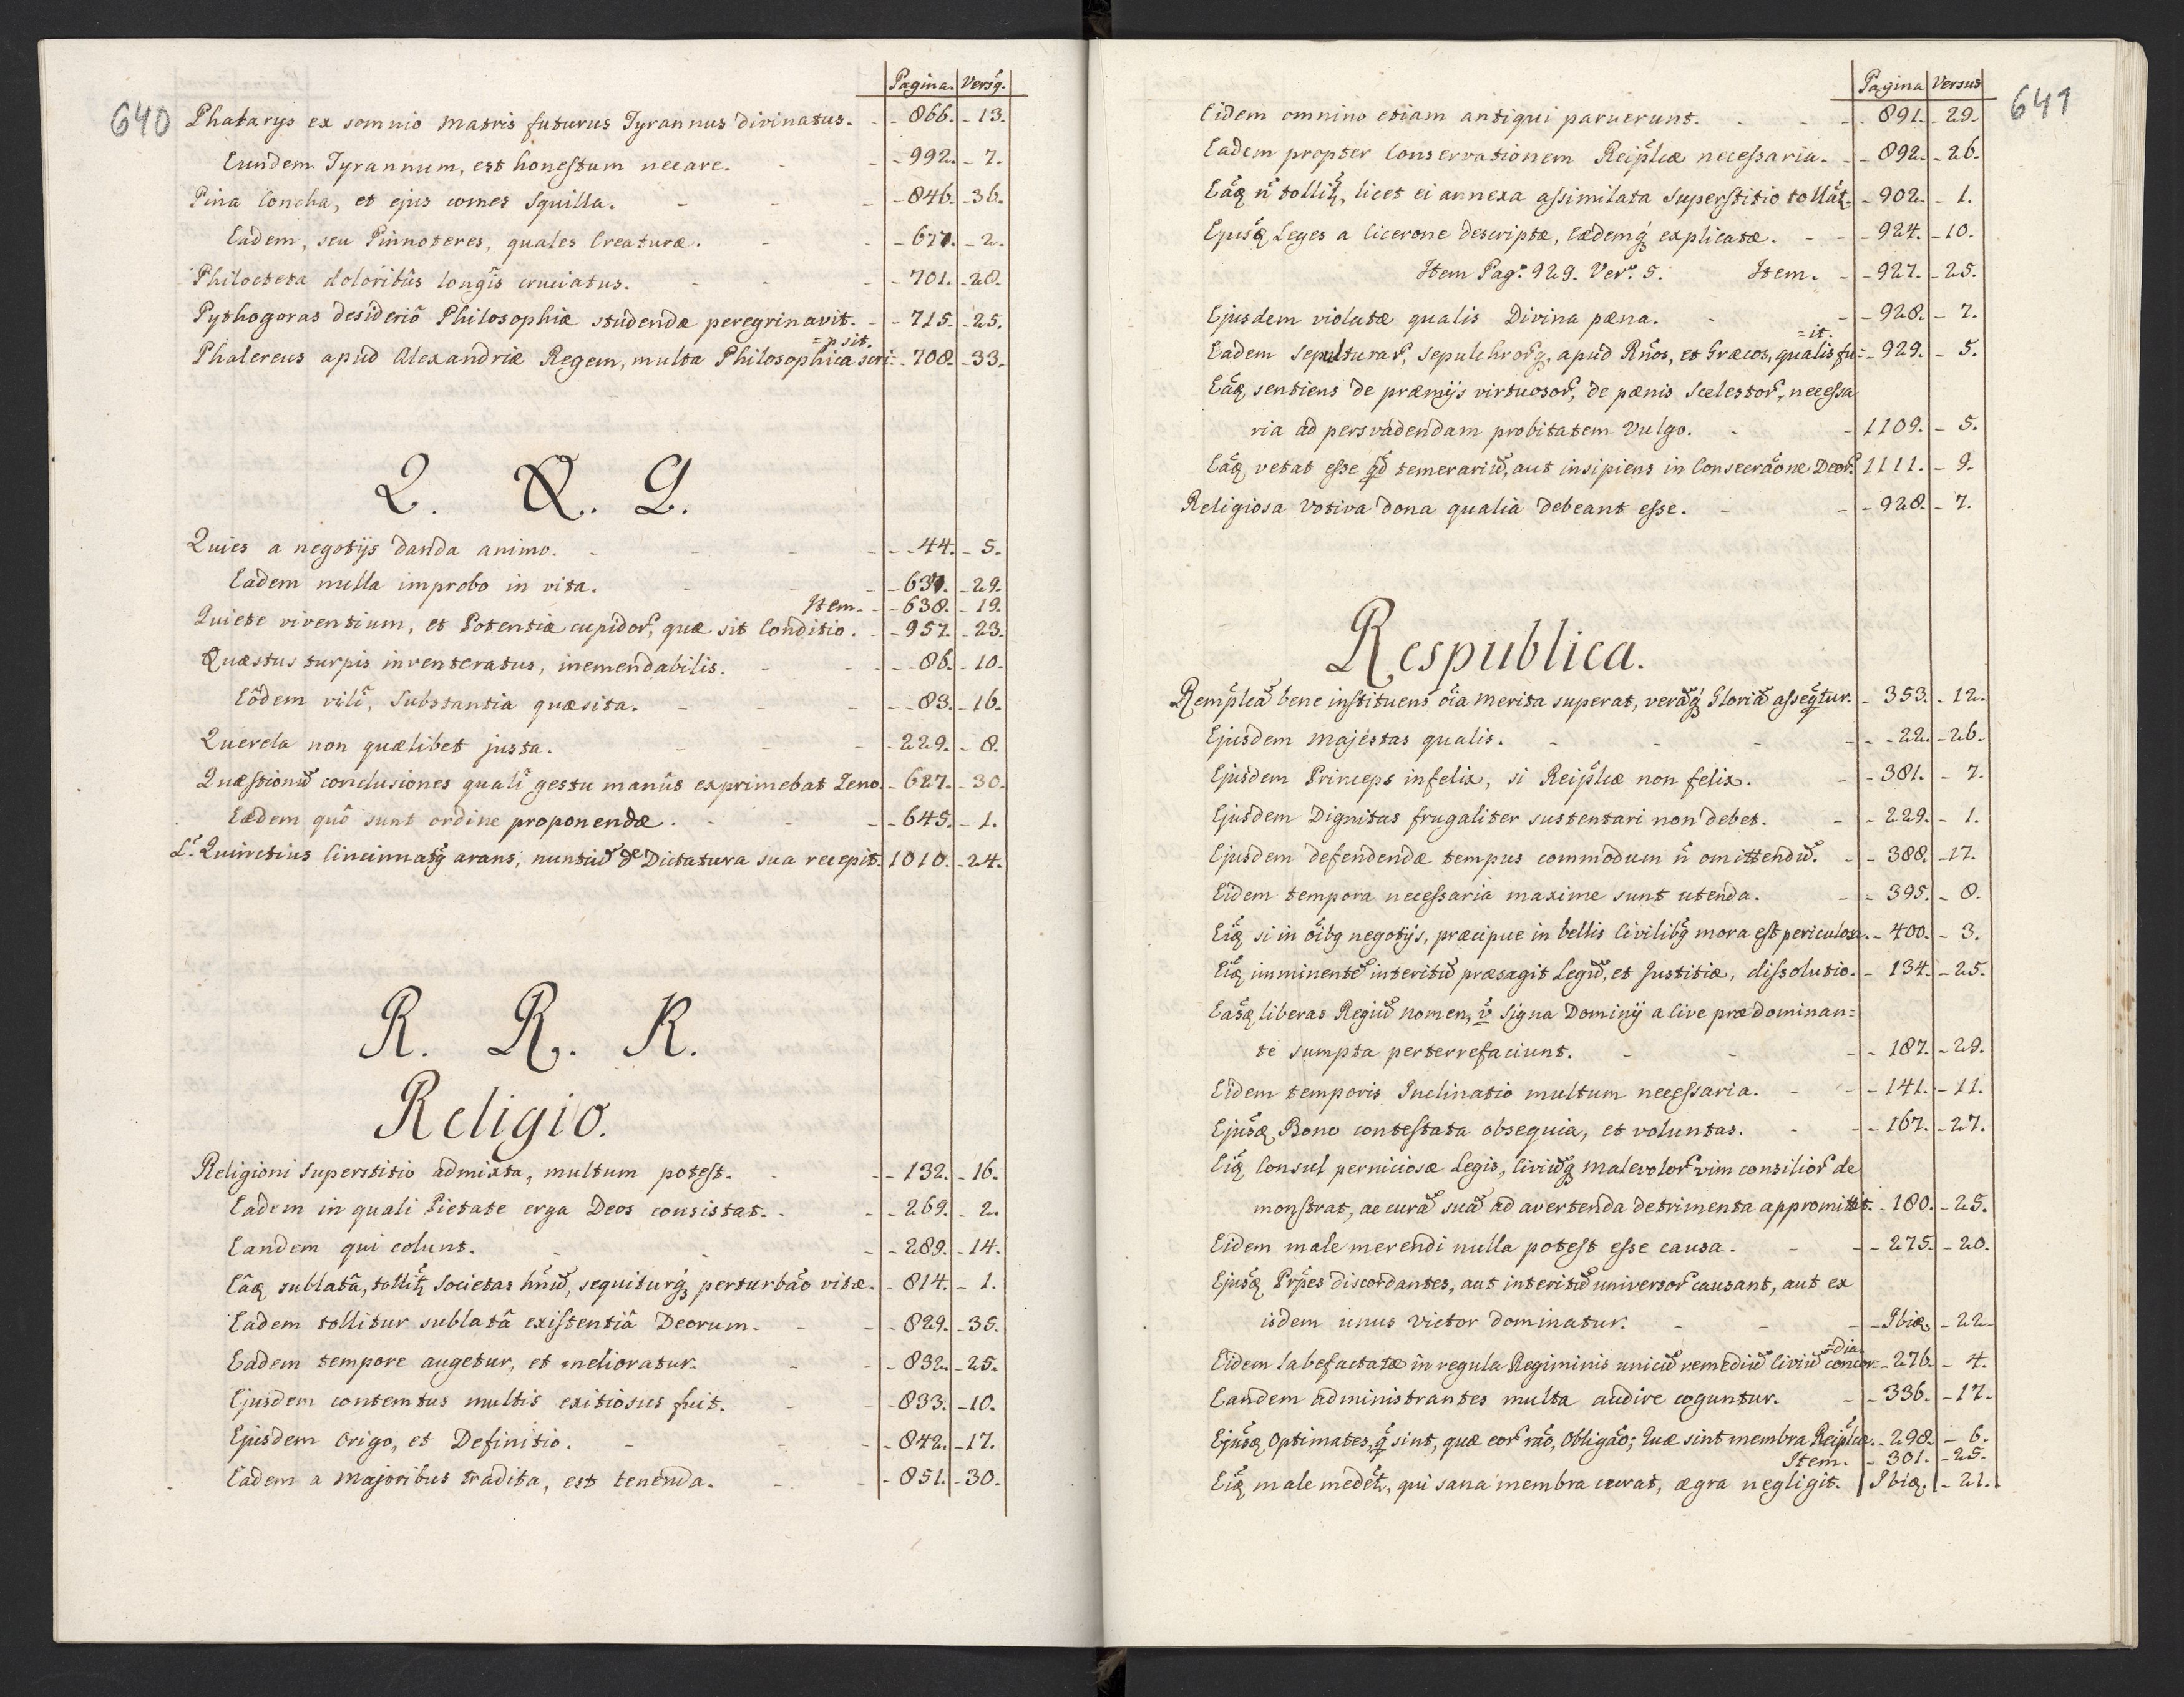 640
Pagina. Versq.
Phatarys ex somnio Matris futurus Tyrannus divinatus. - - 866. - 13.
Eundem Tyrannum, est honestum necare. - - - 992. - 7.
Pina Concha, et ejus comes Squilla. - - - 846. - 36.
Eadem, seu Pinnoteres, quales Creaturæ. - - - 671. - 2.
Philocteta doloribûs longîs cruciatus. - - - 701. - 28.
Pythogoras desideriô Philosophiæ studendæ peregrinavit. - - 715. - 25.
=psit.
Phalereus apud Alexandriæ Regem, multa Philosophica scri= - 708. - 33.
Q. Q. Q.
Quies a negotijs danda animo. - - - 44. - 5.
Eadem nulla improbo in vita. - - - 637. - 29.
Item. - - 638. - 19.
Quiete viventium, et Potentiæ cupidor, quæ sit Conditio. - - 957. - 23.
Quæstus turpis inventeratus, inemendabilis. - - - 86. - 10.
Eôdem vilî, Substantia quæsita. - - - 83. - 16.
Querela non quælibet justa. - - - 229. - 8.
Quæstionũ conclusiones qualî gestu manûs exprimebat Zeno. - 627. - 30.
Eædem quô sunt ordine proponendæ. - - - 645. - 1.
L. Quinctius Cincinnatq arans, nuntiũ de Dictatura sua recepit. 1010. - 24.
R. R. R.
Religio.
Religioni superstitio admixta, multum potest. - - - 132. - 16.
Eadem in quali Pietate erga Deos consistat. - - - 269. - 2.
Eandem qui colunt. - - - 289. - 14.
Eâq sublatâ, tollit Societas hñũ, sequiturq perturbão vitæ. - - 814. - 1.
Eadem tollitur sublatâ existentiâ Deorum. - - - 829. - 35.
Eadem tempore augetur, et melioratur. - - - 832. - 25.
Ejusdem contemtus multis exitiosus fuit. - - - 833. - 10.
Ejusdem Origo, et Definitio. - - - 842. - 17.
Eadem a Majoribus tradita, est tenenda. - - - 851. - 30.
641
Pagina Versus
Eidem omnino etiam antiqui paruerunt. - - - 891. - 29.
Eadem propter Conservationem Reiplcæ necessaria. - - 892. - 26.
Eãq ñ tollit, licet ei annexa assimilata Superstitio tollãt. - 902. - 1.
Ejusq Leges a Cicerone descriptæ, eædemq explicatæ. - - 924. - 10.
Item Pag. 929. Ver. 5. Item. - - 927. - 25.
Ejusdem violatæ qualis Divina pæna. - - - 928. - 7.
=it.
Eadem Sepulturar, sepulchrorq, apud Rños, et Græcos, qualis fu= - 929. - 5.
Eãq sentiens de præmijs virtuosor, de pænis Scelestor, necessa
ria ad persvadendam probitatem Vulgo. - - 1109. - 5.
Eãq vetat esse qd temerariũ, aut insipiens in Consecrãone Deor. 1111. - 9.
Religiosa Votiva dona qualia debeant esse. - - - 928. - 7.
Respublica.
Remplcã bene instituens õia merita superat, verãq Gloriã asseqtur. - 353. - 12.
Ejusdem Majestas qualis. - - - 22. - 26.
Ejusdem Princeps infelix, si Reiplcæ non felix. - - 381. - 7.
Ejusdem Dignitas frugaliter sustentari non debet. - - 229. - 1.
Ejusdem defendendæ tempus commodum ñ omittendũ. - - 388. - 17.
Eidem tempora necessaria maxime sunt utenda. - - 395. - 8.
Eiq si in õibq negotijs, præcipue in bellis Civilibq mora est periculosa. - 400. - 3.
Eiq imminentẽ interitũ præsagit Legũ, et Justitiæ, dissolutio. - 134. - 25.
Easq liberas Regiũ Nomen, v Signa Dominij a Cive prædominan=
te sumpta perterrefaciunt. - - - 187. - 29.
Eidem temporis Inclinatio multum necessaria. - - 141. - 11.
Ejusq Bono contestata obsequia, et voluntas. - - 167. - 27.
Eiq Consul perniciosæ Legis, Civiũq malevolor vim consilior de
monstrat, ac curã suã ad avertenda detrimenta appromittit. - 180. - 25.
Eidem male merendi nulla potest esse causa. - - 275. - 20.
Ejusq Prpes discordantes, aut interitũ universor causant, aut ex
isdem unus victor dominatur. - - - Ibiq - 22.
=dia
Eidem labefactatæ in regula Regiminis unicũ remediũ Civiũ concor= - 276. - 4.
Eandem administrantes multa audire coguntur. - - 336. - 17.
Ejusq Optimates, q sint, quæ eor rão, Obligão; Quæ sint membra Reiplcæ. - 298. - 6.
Item. - 301. - 25.
Eiq male medet, qui sana membra curat, ægra negligit. Ibiq. - 21.